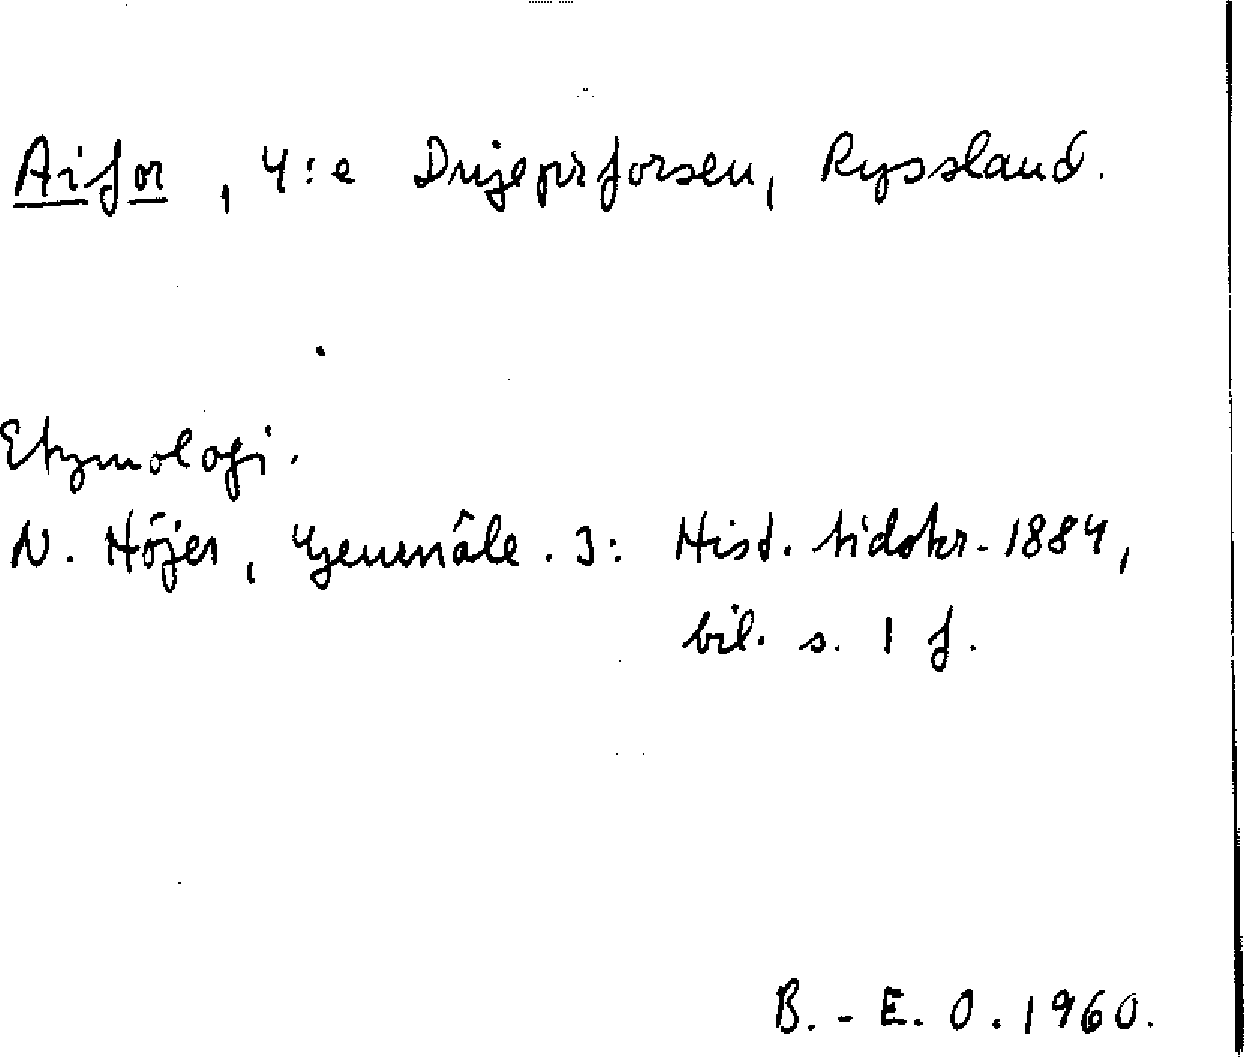 Aifor, 4:e Dnjeprforsen, Ryssland.
Etymologi.
N. Höjer, Genmäle. I: Hist. tidskr. 1884,
bil. s. 1 f.
B.-E. O. 1960.